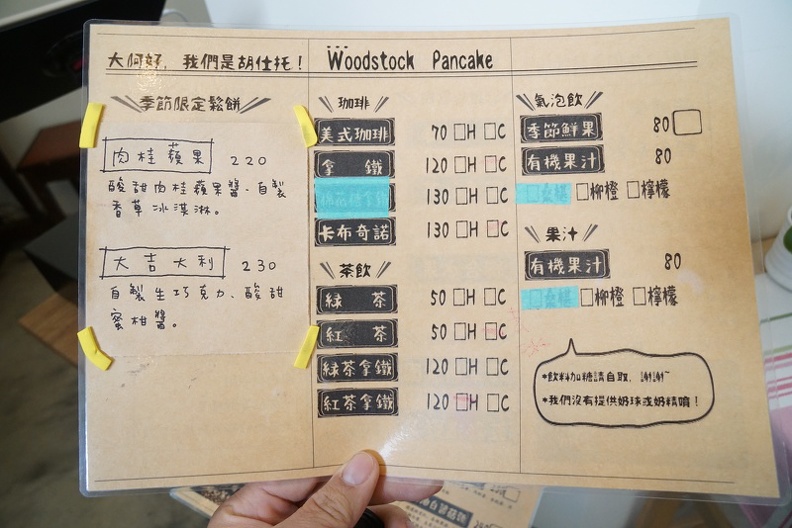 大阿好, 我們是胡仕托! Woodstock Pancake
季節限定鬆餅
肉桂蘋果 220
酸甜肉桂蘋果醬、自製
香草冰淇淋。
大吉大利 230
自製生巧克力、酸甜
蜜柑醬。
咖啡
美式咖啡 70 □H □C
拿鐵 120 □H □C
130 □H □C
卡布奇諾 130 □H □C
茶飲
綠茶 50 □H □C
紅茶 50 □H □C
綠茶拿鐵 120 □H □C
紅茶拿鐵 120 □H □C
氣泡飲
季節鮮果 80 □
有機果汁 80
□柳橙 □檸檬
果汁
有機果汁 80
□柳橙 □檸檬
•飲料加糖請自取, 謝謝~
•我們沒有提供奶球或奶精唷!